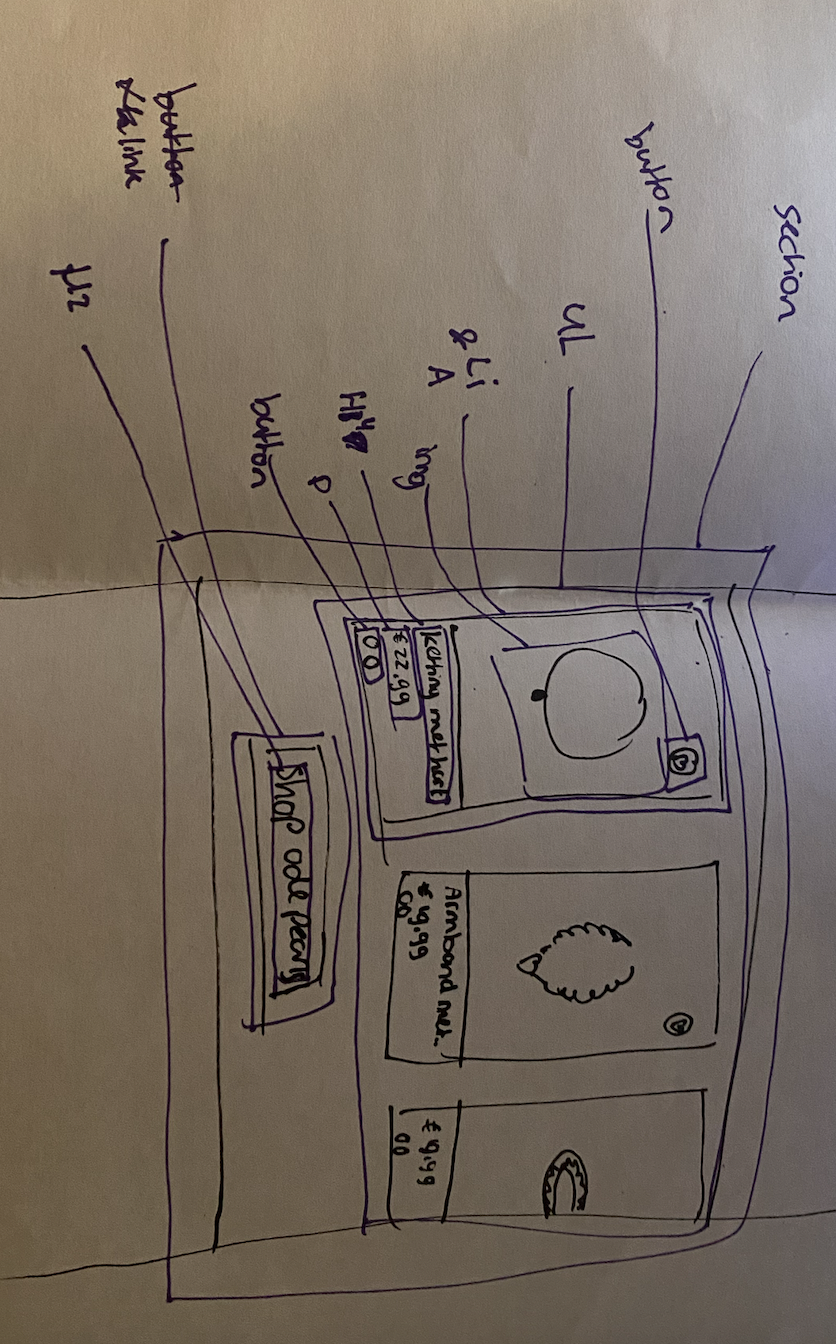 section
button
UL
& Li
A
img
H4
p
button
button
link
H2
ketting met hart
€ 22,99
Armband met..
€ 19,99
€ 9,99
Shop